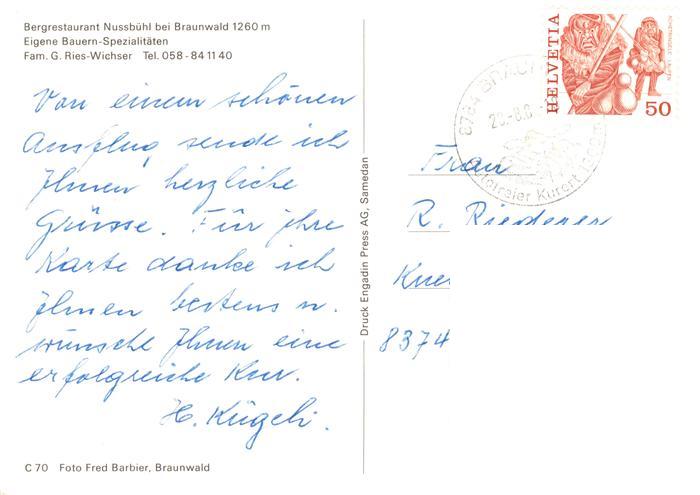 Bergrestaurant Nussbühl bei Braunwald 1260 m
Eigene Bauern-Spezialitäten
Fam. G. Ries-Wichser Tel. 058 - 84 11 40
Von einem schönen
Ausflug sende ich
Ihnen herzliche
Grüsse. Für ihre
Karte danke ich
Ihnen bestens u.
wünsche Ihnen eine
erfolgreiche Kur.
H. Kügeli.
C 70 Foto Fred Barbier, Braunwald
Druck Engadin Press AG, Samedan
HELVETIA
50
8784 BRAUN
Autofreier Kurort
Frau
R. Riederer
8374